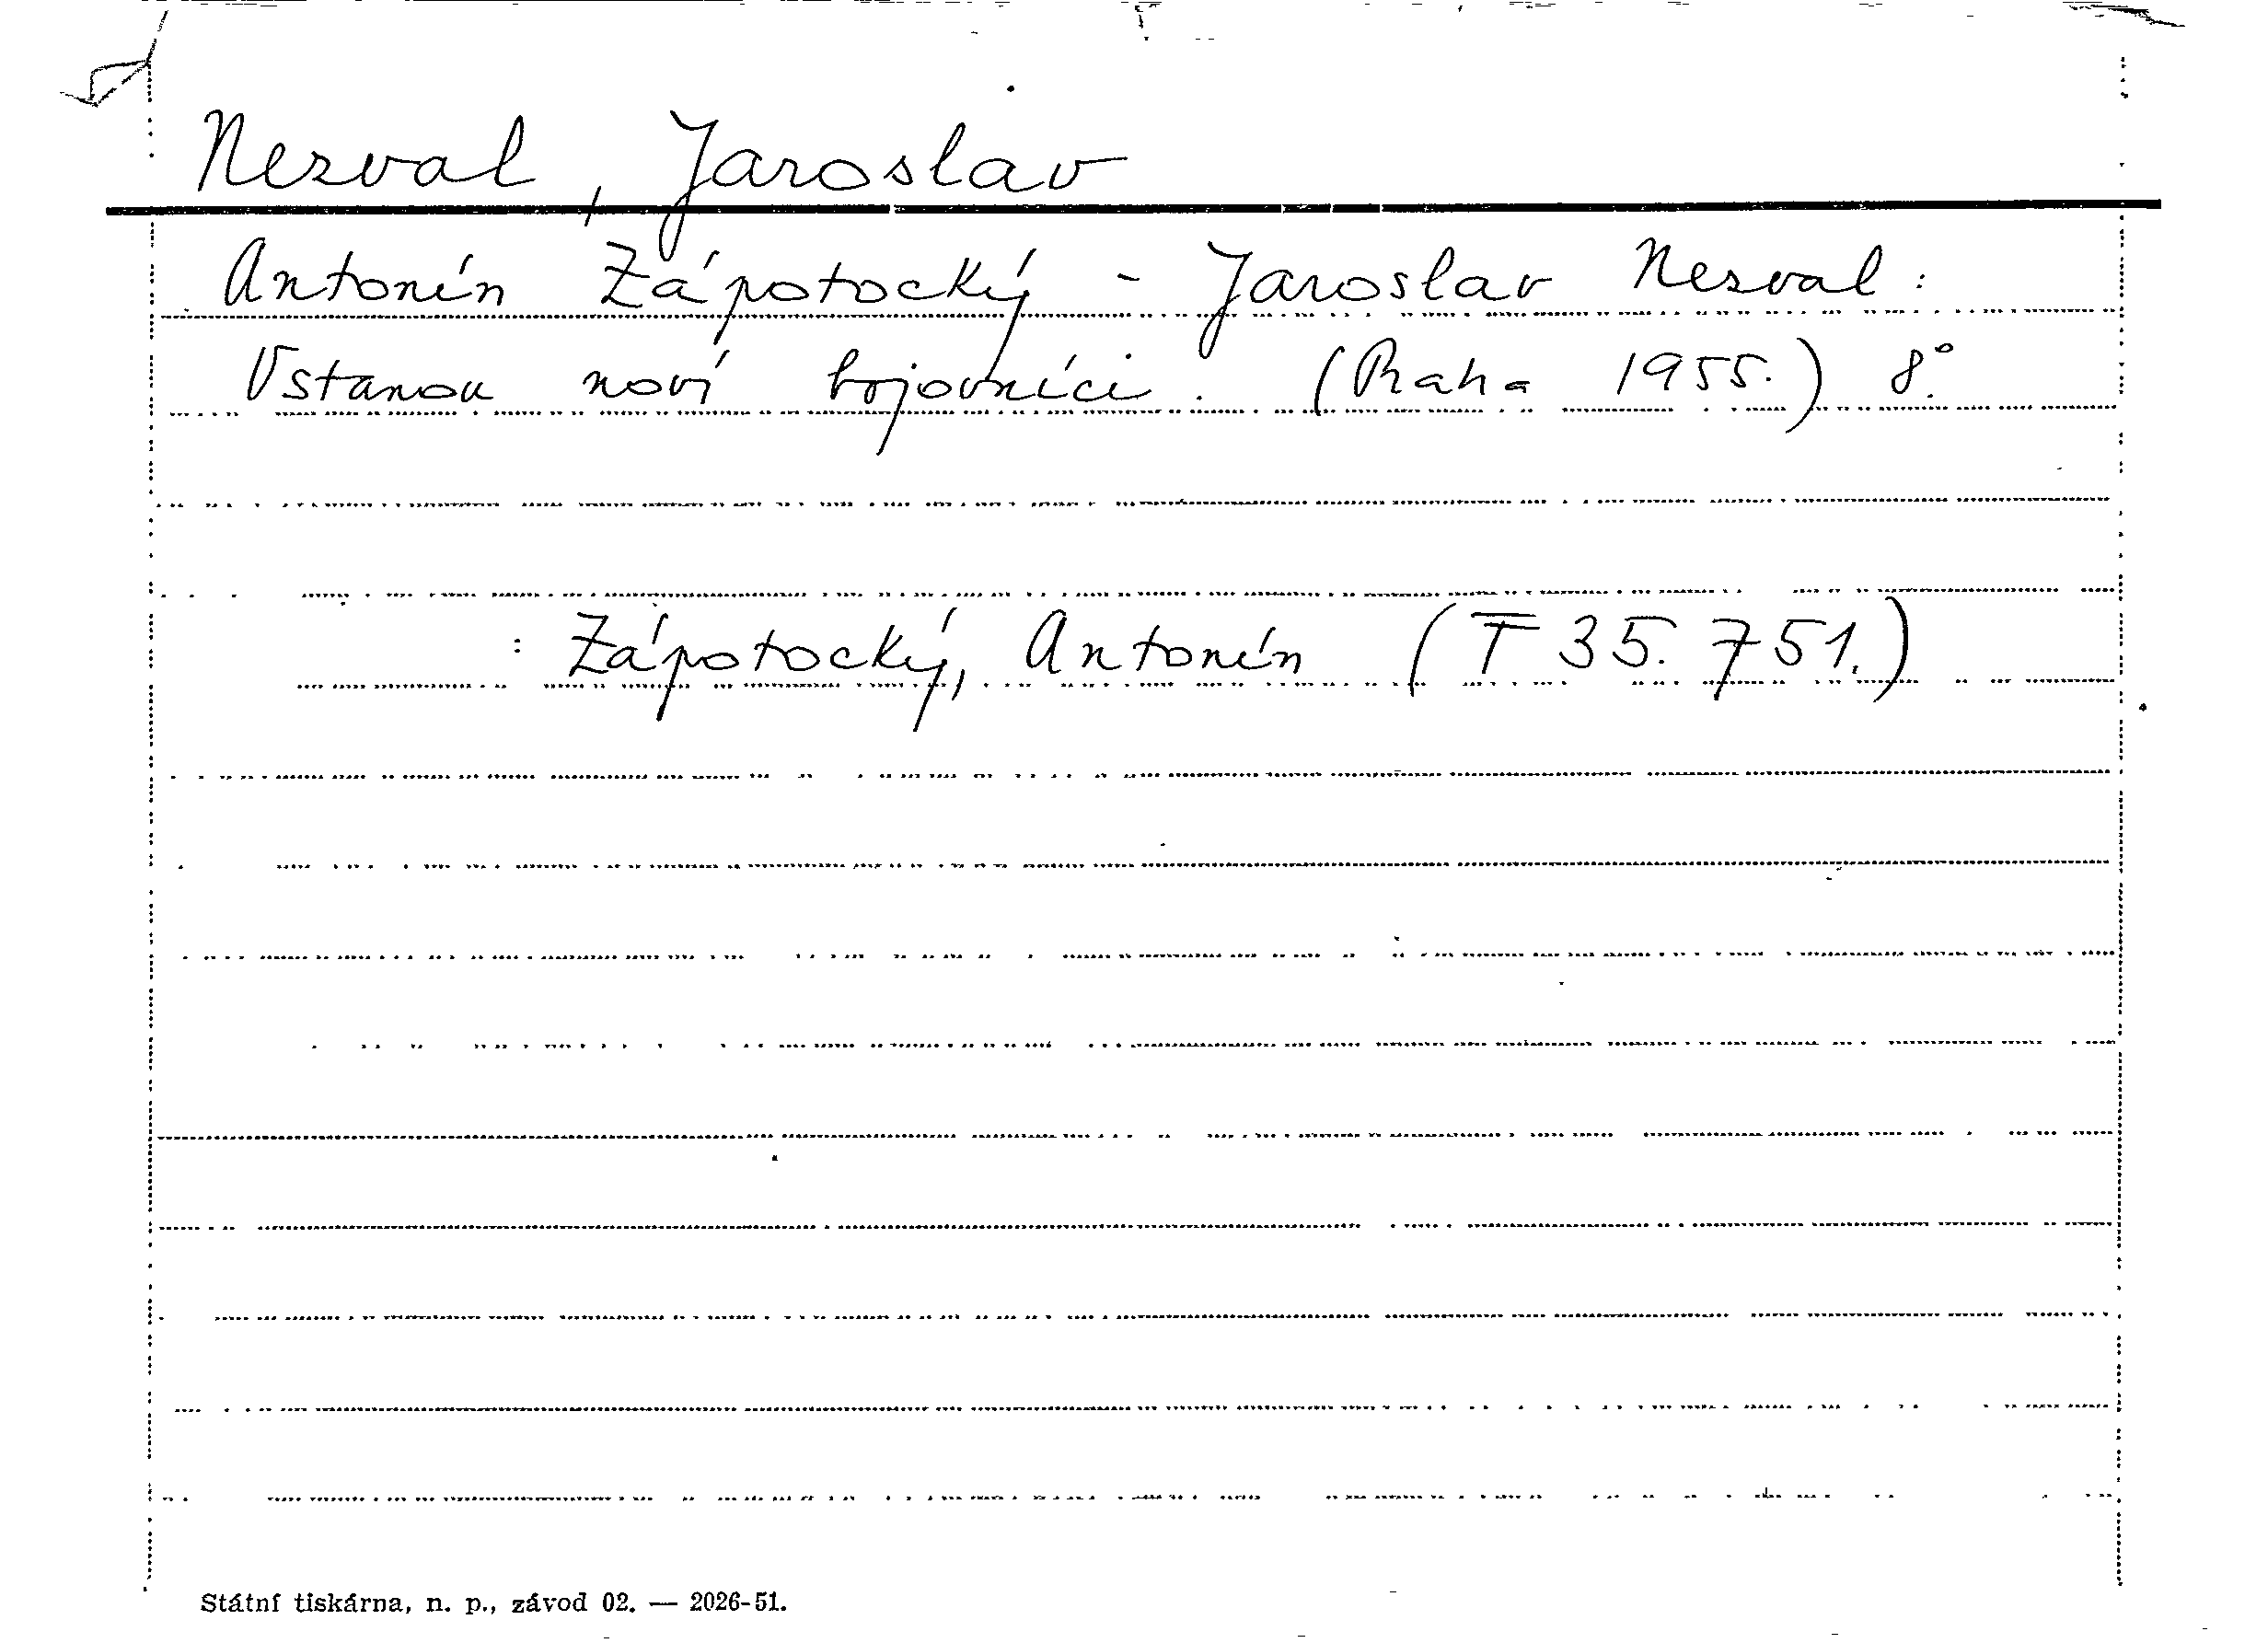 Nezval, Jaroslav
Antonín Zápotocký - Jaroslav Nezval:
Vstanou noví bojovníci. (Praha 1955.) 8°.
: Zápotocký, Antonín (T 35.751.)
Státní tiskárna, n. p., závod 02. — 2026-51.